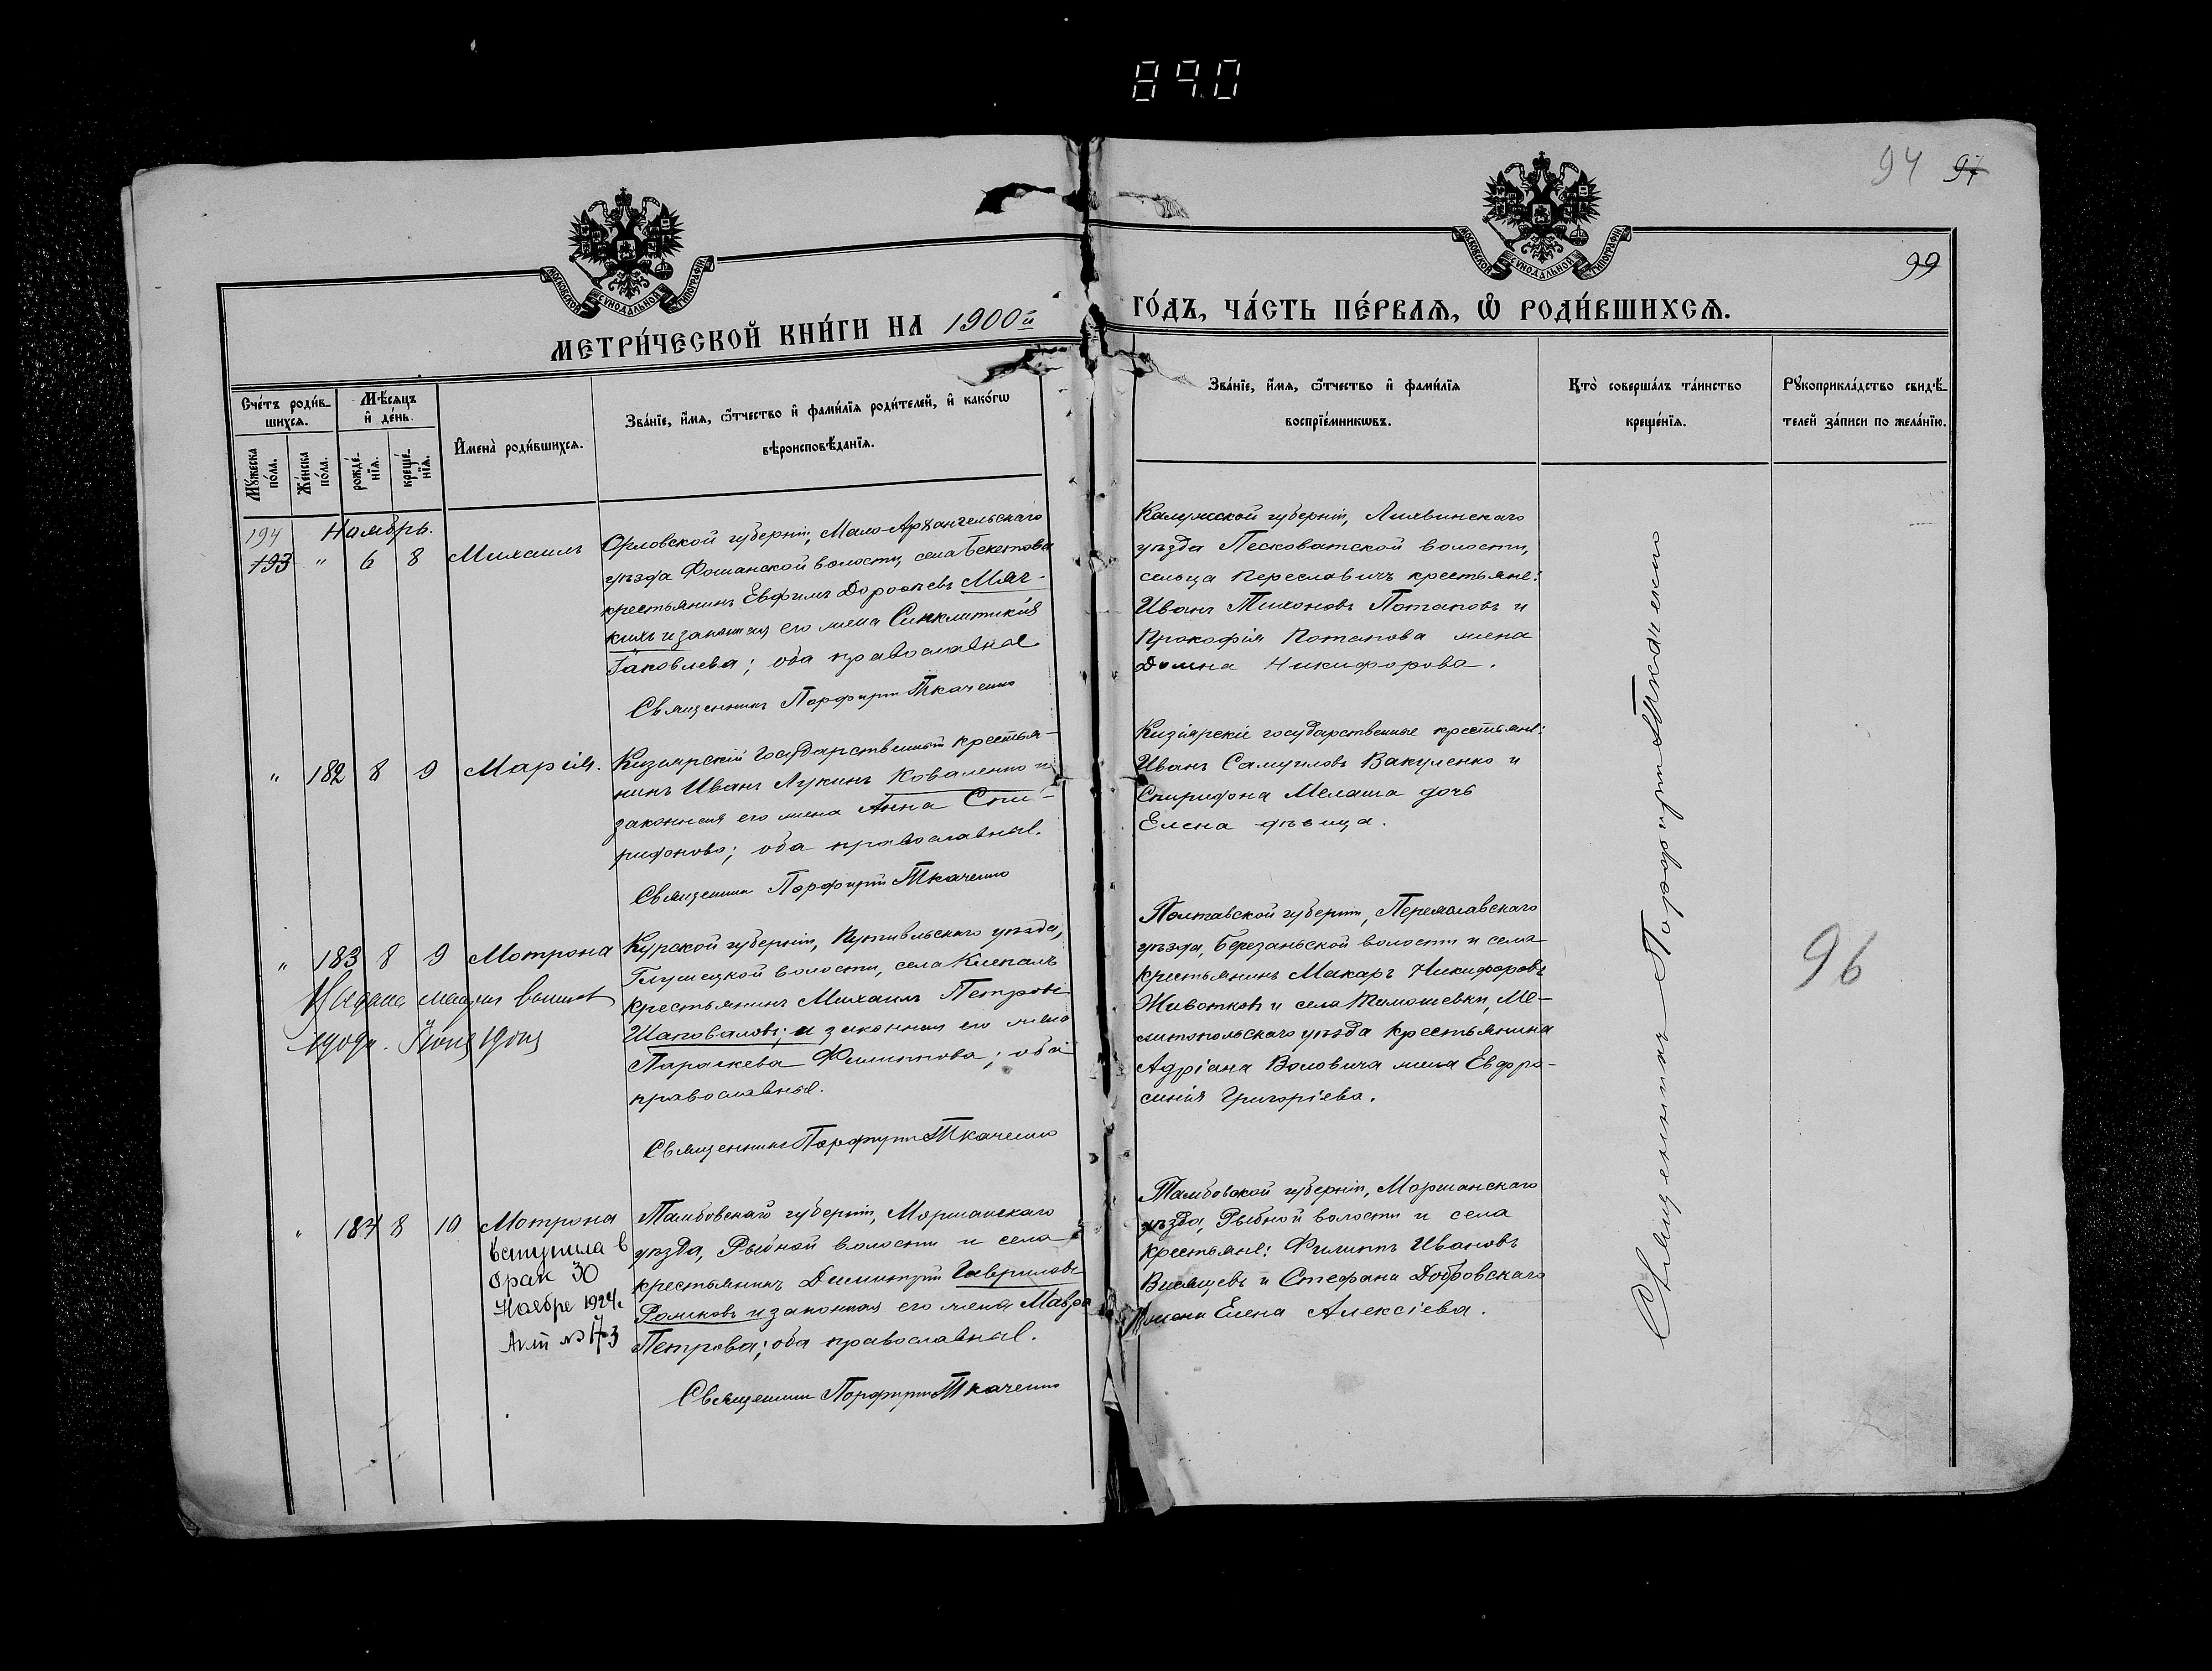 890
94 97
МОСКОВСКОЙ СѴНОДАЛЬНОЙ ТИПОГРАФІИ
МОСКОВСКОЙ СѴНОДАЛЬНОЙ ТИПОГРАФІИ
99
МЕТРИ́ЧЕСКОЙ КНИ́ГИ НА 1900й
ГО́ДЪ, ЧА́СТЬ ПЕ́РВАѦ, Ѡ҆ РОДИ́ВШИХСѦ.
Сче́тъ роди́в-
шихсѧ.
Мѣ́сѧцъ
и҆ де́нь.
Мꙋ́жеска
по́ла.
Же́нска
по́ла.
рожде́-
нїѧ.
креще́-
нїѧ.
И҆мена̀ роди́вшихсѧ.
Зва́нїе, и҆́мѧ, ѻ҆́тчество и҆ фами́лїѧ роди́телей, и҆ како́гѡ
вѣроисповѣ́данїѧ.
Зва́нїе, и҆́мѧ, ѻ҆́тчество и҆ фами́лїѧ
воспрїе́мникѡвъ.
Кто̀ соверша́лъ та́инство
креще́нїѧ.
Рꙋкоприкла́дство свидѣ́-
телей за́писи по жела́нїю.
194 Ноябрь.
193 " 6 8 Михаилъ
Орловской губерніи, Мало-Архангельскаго
уѣзда Фошанской волости, села Бекетова
крестьянинъ Евфимъ Дороѳеевъ Мяг-
кихъ и законная его жена Синклитикія
Іаковлева; оба православные
Священникъ Порфирій Ткаченко
Калужской губерніи, Лихвинскаго
уѣзда Песковатской волости,
сельца Переславичъ крестьяне:
Иванъ Тихоновъ Потаповъ и
Прокофія Потапова жена
Домна Никифорова.
" 182 8 9 Марія.
Кизіярскій Государственный крестья-
нинъ Иванъ Лукинъ Коваленко и
законная его жена Анна Спи-
ридонова; оба православные.
Священникъ Порфирій Ткаченко
Кизіярскіе государственные крестьяне:
Иванъ Самуиловъ Вакуленко и
Спиридона Мелаша дочь
Елена дѣвица.
" 183 8 9 Мотрона
Выдана
Іюня
Курской губерніи, Путивльскаго уѣзда,
Глушецкой волости, села
крестьянинъ Михаилъ Петровъ
Шаповаловъ; и законная его жена
Параскева Филиппова; оба
православные.
Священникъ Порфирій Ткаченко
Полтавской губерніи, Переяславскаго
уѣзда, Березаньской волости и села
крестьянинъ Макаръ Никифоровъ
Животковъ и села Тимошевки, Ме-
литопольскаго уѣзда крестьянина
Адріана Воловича жена Евфро-
синія Григоріева.
96
" 184 8 10 Мотрона
вступила в
брак 30
Ноября 1924г.
Акт №
Тамбовскаго губерніи, Моршанскаго
уѣзда, Рыбной волости и села
крестьянинъ Димитрій Гавриловъ
Ромковъ и законная его жена Мавра
Петрова; оба православные.
Священникъ Порфирій Ткаченко
Тамбовской губерніи, Моршанскаго
уѣзда, Рыбной волости и села
крестьяне: Филиппъ Ивановъ
и Стефана Добровскаго
жена Елена Алексіева.
Священникъ Порфирій Ткаченко